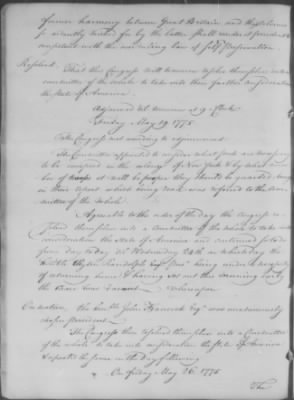 former harmony between Great Britain and these Colonies
so ardently wished for by the latter shall render it prudent &
consistent with the overruling law of self preservation
Resolved. That this Congress will tomorrow resolve themselves into a
committee of the whole to take into their farther consideration
the state of America
Adjourned till tomorrow at 9 o'Clock
Friday May 19. 1775
The Congress met according to adjournment.
The Committee appointed to consider what posts are necessary
to be occupied in the colony of New York & by what num-
ber of troops it will be proper they should be guarded brought
in their report which being read was referred to the com-
mittee of the whole
Agreeable to the order of the day the Congress re-
solved themselves into a committee of the whole to take into
consideration the state of America and continued so to do
from day to day till Wednesday 24th on which day the
Honble Peyton Randolph Esqr being under a necessity
of returning home & having set out this morning early
the chair was vacant
On motion, the honble John Hancock Esqr was unanimously
chosen president
The Congress then resolved themselves into a Committee
of the whole to take into consideration the state of America
& so the same in the day following
On friday May 26. 1775
The